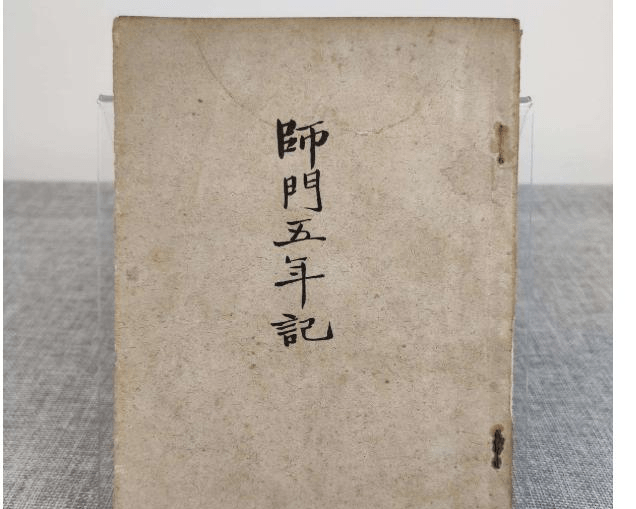 師門五年記